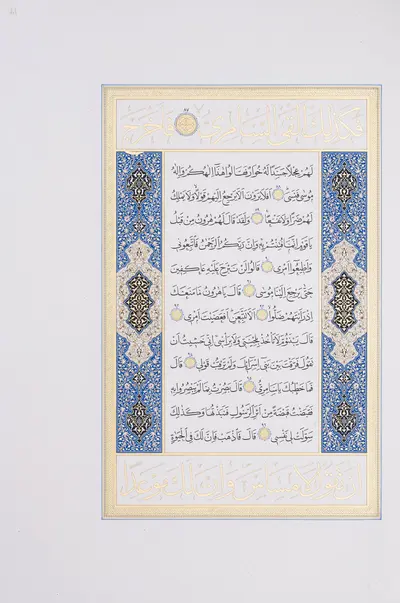 فَكَذَٰلِكَ أَلْقَى السَّامِرِيُّ ۝ فَأَخْرَجَ
لَهُمْ عِجْلًا جَسَدًا لَهُ خُوَارٌ فَقَالُوا هَٰذَا إِلَٰهُكُمْ وَإِلَٰهُ
مُوسَىٰ فَنَسِيَ ۝ أَفَلَا يَرَوْنَ أَلَّا يَرْجِعُ إِلَيْهِمْ قَوْلًا وَلَا يَمْلِكُ
لَهُمْ ضَرًّا وَلَا نَفْعًا ۝ وَلَقَدْ قَالَ لَهُمْ هَٰرُونُ مِنْ قَبْلُ
يَا قَوْمِ إِنَّمَا فُتِنْتُمْ بِهِ وَإِنَّ رَبَّكُمُ الرَّحْمَٰنُ فَاتَّبِعُونِي
وَأَطِيعُوا أَمْرِي ۝ قَالُوا لَنْ نَبْرَحَ عَلَيْهِ عَاكِفِينَ
حَتَّىٰ يَرْجِعَ إِلَيْنَا مُوسَىٰ ۝ قَالَ يَاهَٰرُونُ مَا مَنَعَكَ
إِذْ رَأَيْتَهُمْ ضَلُّوا ۝ أَلَّا تَتَّبِعَنِ أَفَعَصَيْتَ أَمْرِي ۝
قَالَ يَبْنَؤُمَّ لَا تَأْخُذْ بِلِحْيَتِي وَلَا بِرَأْسِي إِنِّي خَشِيتُ أَنْ
تَقُولَ فَرَّقْتَ بَيْنَ بَنِي إِسْرَائِيلَ وَلَمْ تَرْقُبْ قَوْلِي ۝ قَالَ
فَمَا خَطْبُكَ يَا سَامِرِيُّ ۝ قَالَ بَصُرْتُ بِمَا لَمْ يَبْصُرُوا بِهِ
فَقَبَضْتُ قَبْضَةً مِنْ أَثَرِ الرَّسُولِ فَنَبَذْتُهَا وَكَذَٰلِكَ
سَوَّلَتْ لِي نَفْسِي ۝ قَالَ فَاذْهَبْ فَإِنَّ لَكَ فِي الْحَيَوٰةِ
أَنْ تَقُولَ لَا مِسَاسَ وَإِنَّ لَكَ مَوْعِدًا